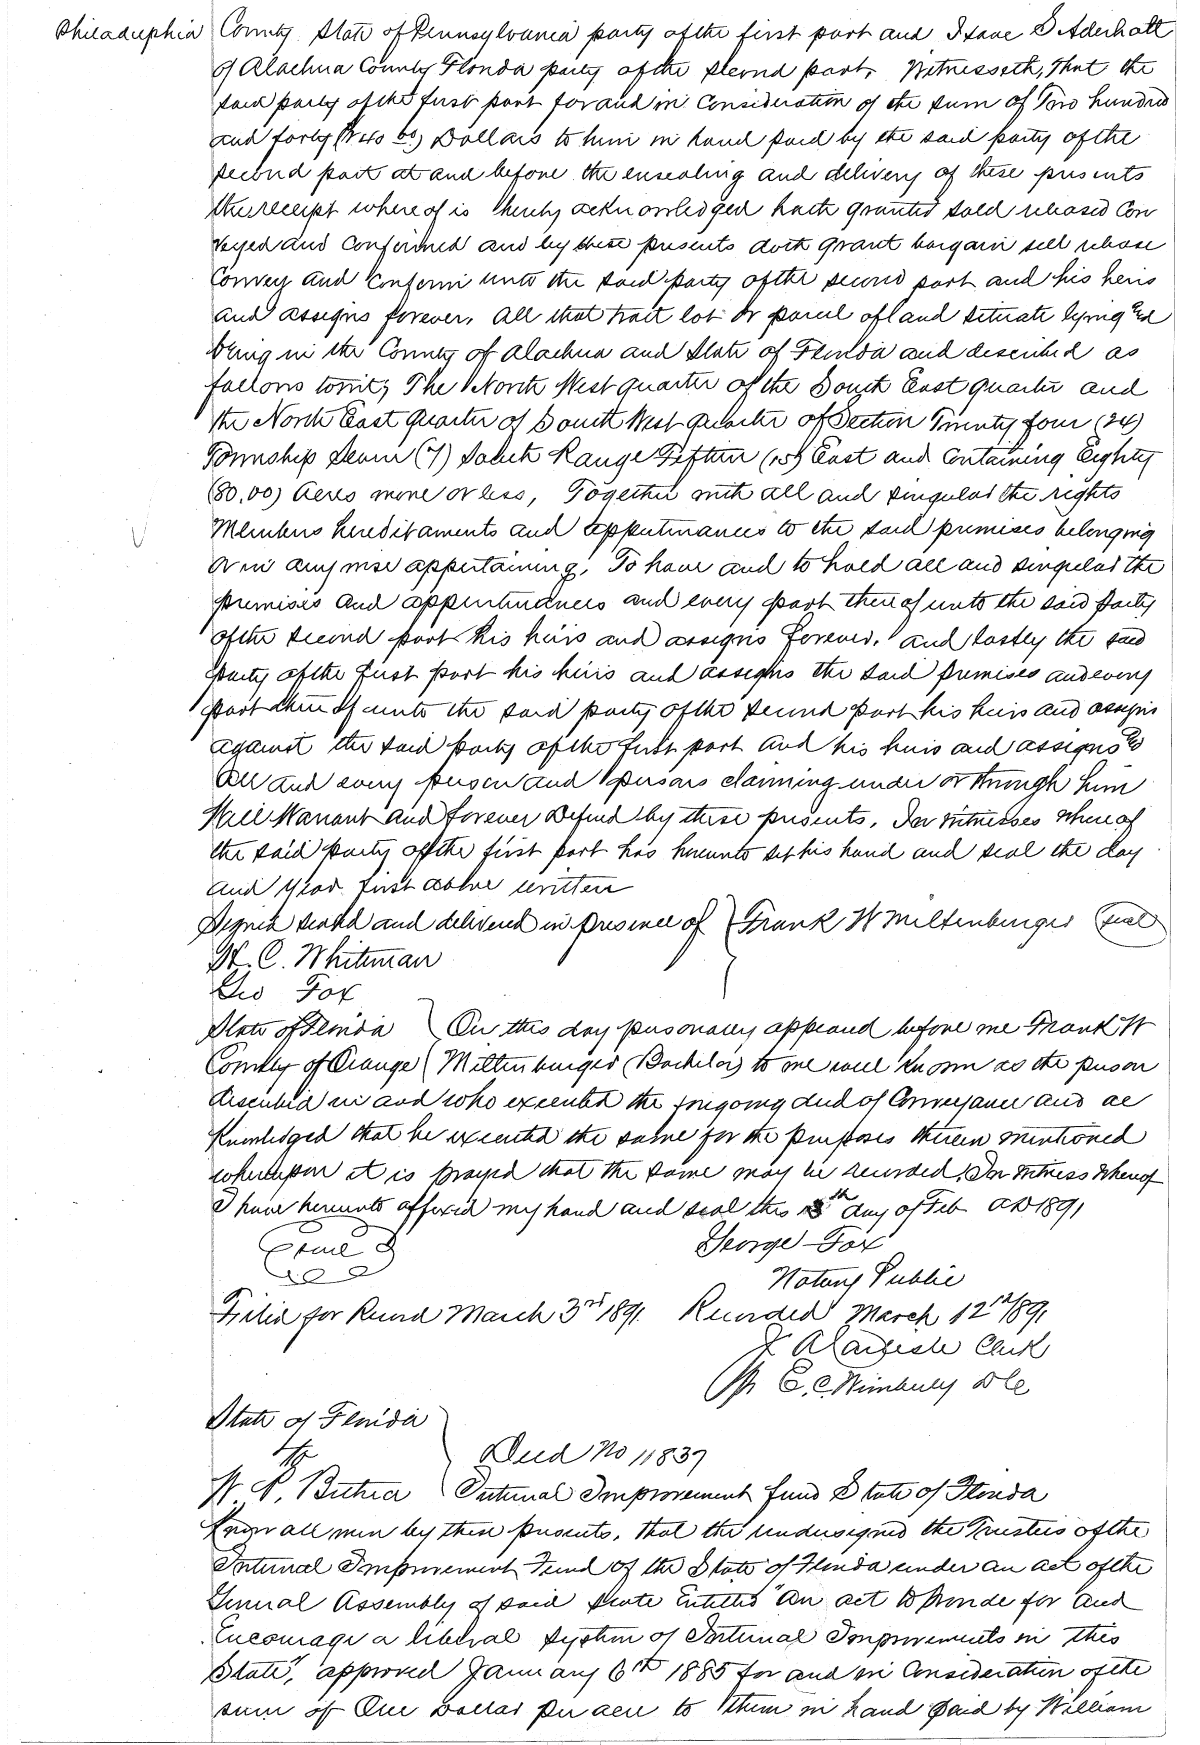 Philadelphia County State of Pennsylvania party of the first part and Isaac S Aderholt
of Alachua County Florida party of the second part, Witnesseth, That the
said party of the first part for and in Consideration of the sum of Two hundred
and forty ($240 00) Dollars to him in hand paid by the said party of the
second part at and before the ensealing and delivery of these presents
the receipt where of is hereby acknowledged hath granted sold released Con
veyed and Confirmed and by these presents doth grant bargain sell release
Convey and Confirm unto the said party of the second part and his heirs
and assigns forever, All that tract lot or parcel of land situate lying and
being in the County of Alachua and State of Florida and described as
follows towit; The North West quarter of the South East quarter and
the North East quarter of South West quarter of Section Twenty four (24)
Township Seven (7) South Range Fifteen (15) East and Containing Eighty
(80.00) Acres more or less, Together with all and singular the rights
Members hereditaments and appurtinances to the said premises belonging
or in any wise appertaining, To have and to hold all and singular the
premises and appurtinances and every part there of unto the said party
of the second part his heirs and assigns forever. and lastly the said
party of the first part his heirs and assigns the said premises and every
part there of unto the said party of the second part his heirs and assigns
against the said party of the first part and his heirs and assigns and
all and every person and persons claiming under or through him
Will Warrant and forever Defend by these presents, In witnesses where of
the said party of the first part has hereunto set his hand and seal the day
and year first above written
Signed sealed and delivered in presence of } Frank W Miltenburger (seal)
H. C. Whitman
Geo Fox
State of Florida } On this day personally appeared before me Frank W
County of Orange } Miltenburger (Bachelor) to me well known as the person
described in and who executed the foregoing deed of Conveyance and ac
knowledged that he executed the same for the purposes therein mentioned
whereupon it is prayed that the same may be recorded, In witness where of
I have hereunto affixed my hand and seal this th day of Feb AD 1891
George Fox
Notary Public
Filed for Record March 3rd 1891. Recorded March 12th 1891
J A Carlisle Clerk
Pr E. C. Wimberly D C
State of Florida
To } Deed No 11837
W. P. Bethea } Internal Improvement fund State of Florida
Know all men by these presents, that the undersigned the Trustees of the
Internal Improvement Fund of the State of Florida under an act of the
General Assembly of said State Entitled "An act to Provide for and
Encourage a liberal system of Internal Improvements in this
State", approved January 6th 1885 for and in Consideration of the
sum of One Dollar per acre to them in hand paid by William